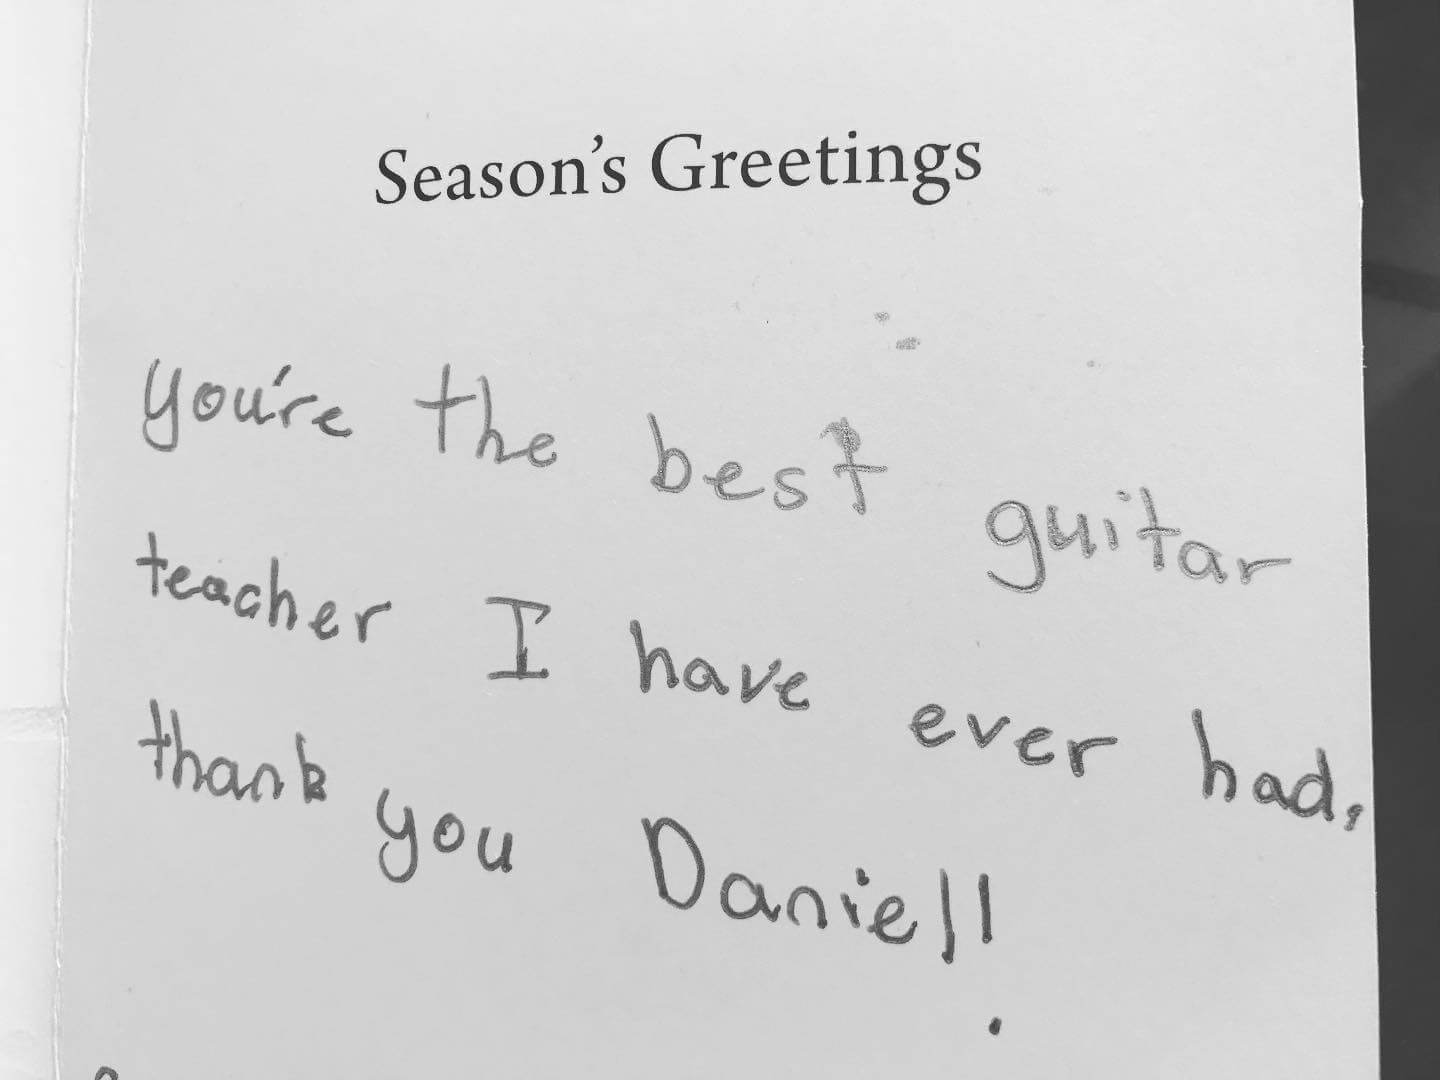 Season's Greetings
you're the best guitar
teacher I have ever had,
thank you Daniel!